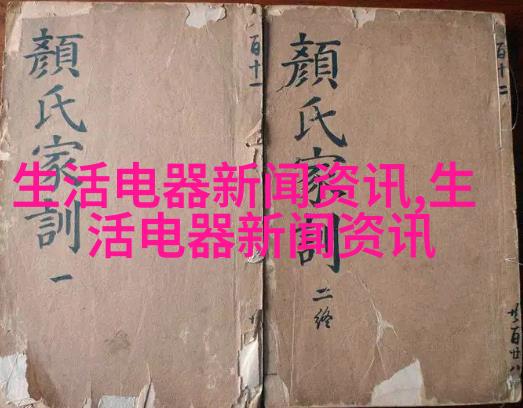 顔氏家訓 一
百十一
顔氏家訓 二終
百十二
生活电器新闻资讯,生
活电器新闻资讯